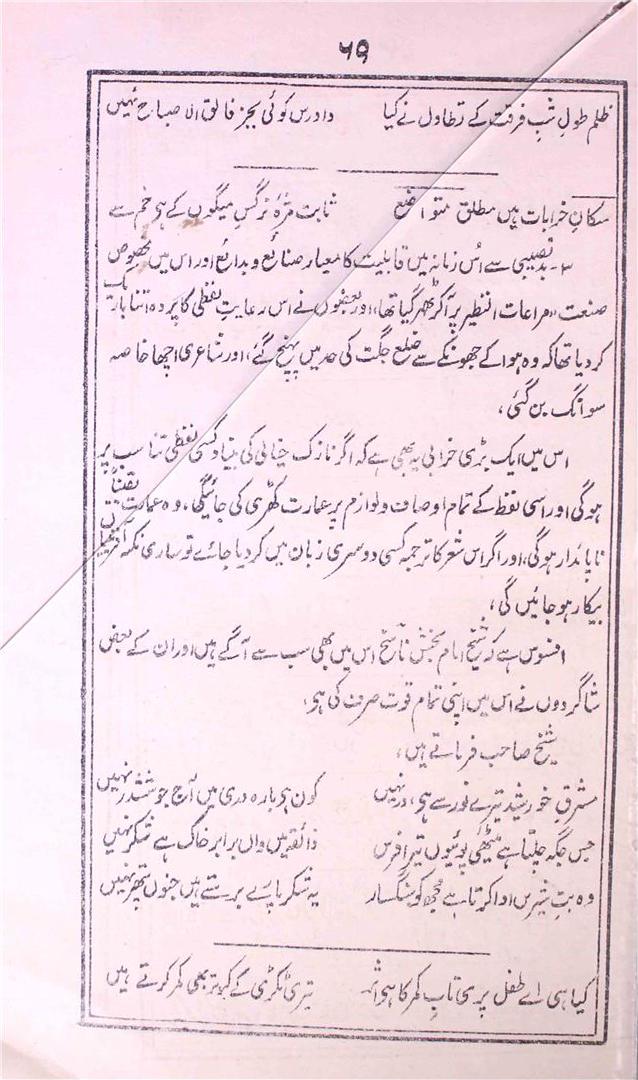 ۶۹
ظلم طولِ شبِ فرقت کے تطاول نے کیا دادرس کوئی بجز فالق الاصباح نہیں
سکانِ خرابات ہیں مطلق متواضع ثابت مژۂ نرگسِ میگوں کے ہی خم سے
۳۔ بدنصیبی سے اُس زمانہ میں قابلیت کا معیار صنایع و بدائع اور اس میں بخصوص
صنعت "مراعات النظیر" پر آکر ٹھہر گیا تھا، اور بعضوں نے اس رعایتِ لفظی کا پردہ اتنا باریک
کر دیا تھا کہ وہ ہوا کے جھونکے سے ضلع جگت کی حد میں پہنچ گئے، اور شاعری اچھا خاصہ
سوانگ بن گئی،
اس میں ایک بڑی خرابی یہ بھی ہے کہ اگر نازک خیالی کی بنیاد کسی لفظی تناسب پر
ہوگی اور اسی لفظ کے تمام اوصاف و لوازم پر عمارت کھڑی کی جائیگی، وہ عمارت یقیناً
ناپائدار ہوگی، اور اگر اس شعر کا ترجمہ کسی دوسری زبان میں کر دیا جائے تو ساری نکتہ آفرینیاں
بیکار ہو جائیں گی،
افسوس ہے کہ شیخ امام بخش ناسخ اس میں بھی سب سے آگے ہیں اور ان کے بعض
شاگردوں نے اس میں اپنی تمام قوت صرف کی ہی،
شیخ صاحب فرماتے ہیں،
مشرقِ خورشید تیرے نور سے ہی، در نہیں کون ہی بارہ دری میں آج جو ششدر نہیں
جس جگہ چلتا ہے میٹھی پوئیوں تیرا فرس ذائقہ میں واں برابر خاک ہے شکر نہیں
وہ بتِ شیریں ادا کرتا ہے مجھ کو سنگسار یہ شکر پارے برستے ہیں جنوں پتھر نہیں
کیا ہی اے طفل پری تابِ کمر کا ہی اثر تیری ٹکڑی کے کبوتر بھی کمر کرتے ہیں